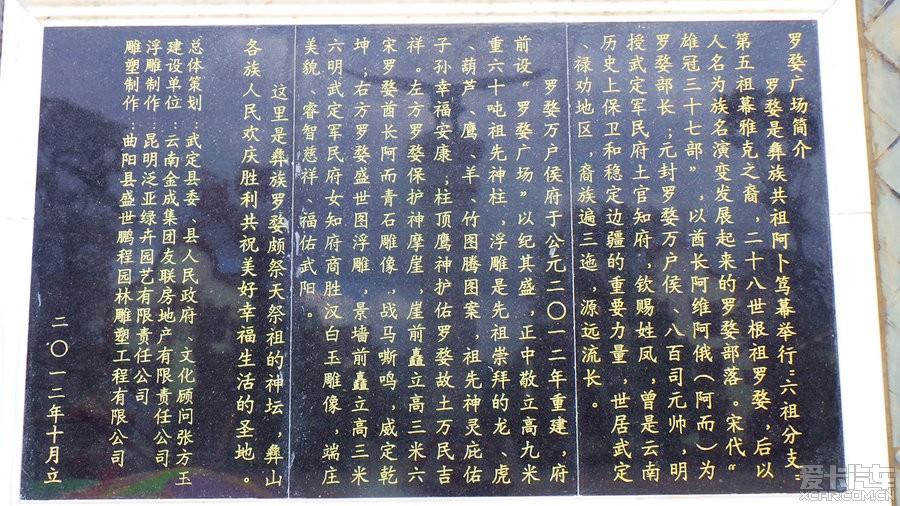 罗婺广场简介
罗婺是彝族共祖阿卜笃慕举行“六祖分支”
第五祖幕雅克之裔，二十八世根祖罗婺，后以
人名为族名演变发展起来的罗婺部落。宋代“
雄冠三十七部”，以酋长阿维阿俄（阿而）为
罗婺部长；元封罗婺万户侯、八百司元帅，明
授武定军民府土官知府，钦赐姓凤，曾是云南
历史上保卫和稳定边疆的重要力量，世居武定
、禄劝地区，裔族遍三迤，源远流长。
罗婺万户侯府于公元二〇一二年重建，府
前设“罗婺广场”以纪其盛，正中敬立高九米
重六十吨祖先神柱，浮雕是先祖崇拜的龙、虎
、葫芦、鹰、羊、竹图腾图案，祖先神灵庇佑
子孙幸福安康；柱顶鹰神护佑罗婺故土万民吉
祥。左方罗婺保护神摩崖，崖前矗立高三米六
宋罗婺酋长阿而青石雕像，战马嘶鸣，威定乾
坤；右方罗婺盛世图浮雕，景墙前矗立高三米
六明武定军民府女知府商胜汉白玉雕像，端庄
美貌、睿智慈祥、福佑武阳。
这里是彝族罗婺颇祭天祭祖的神坛，彝山
各族人民欢庆胜利共祝美好幸福生活的圣地。
总体策划：武定县委、县人民政府、文化顾问张方玉
建设单位：云南金成集团友联房地产有限责任公司
浮雕制作：昆明泛亚绿卉园艺有限责任公司
雕塑制作：曲阳县盛世鹏程园林雕塑工程有限公司
二〇一二年十月立
爱卡汽车
XCAR.COM.CN